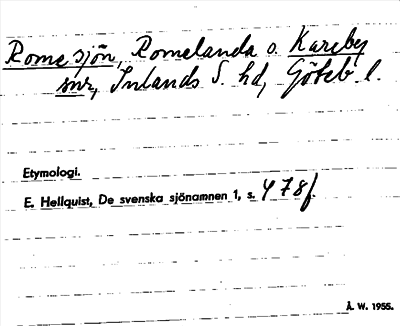 Rome sjön, Romelanda o. Kareby
snr, Inlands S. hd, Göteb. l.
Etymologi.
E. Hellquist, De svenska sjönamnen 1, s. 478f.
Å. W. 1955.